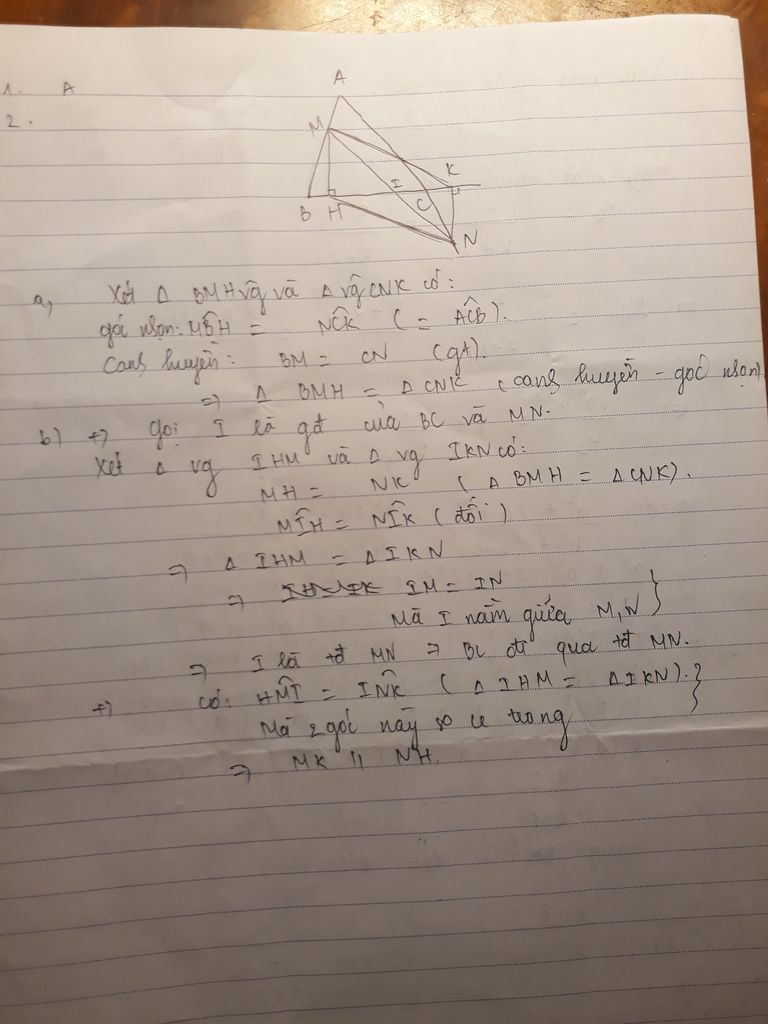 1. A
2.
A
M
K
I
B H
C
N
a, Xét Δ BMH vg và Δ vg CNK có:
góc nhọn: MB̂H = NĈK (= AĈB).
Cạnh huyền: BM = CN (gt).
=> Δ BMH = Δ CNK (cạnh huyền - góc nhọn)
b) +) gọi I là gđ của BC và MN.
Xét Δ vg IHM và Δ vg IKN có:
MH = NK (Δ BMH = Δ CNK).
MÎH = NÎK (đối)
=> Δ IHM = Δ IKN
=> IM = IN
Mà I nằm giữa M, N }
=> I là tđ MN => BC đi qua tđ MN.
+) có: HM̂I = IN̂K (Δ IHM = Δ IKN). }
Mà 2 góc này so le trong
=> MK // NH.